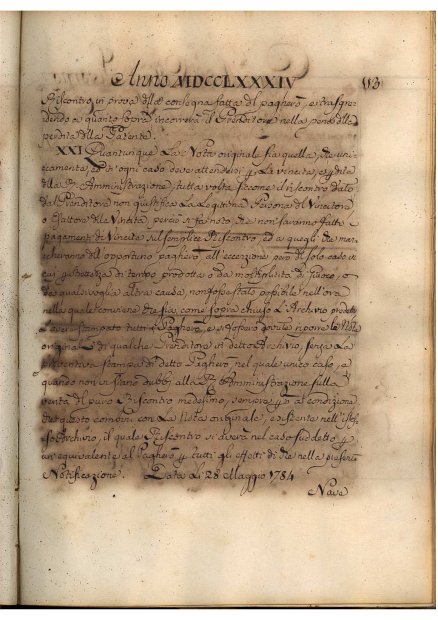 Anno MDCCLXXXIV 113
Riscontro in prova della consegna fatta del pagherò, e trasgre-
dendo a quanto sopra incorrerà il Prenditore nella pena della
perdita della Patente.
XXI Quantunque La Nota originale sia quella, che uni-
camente, ed in ogni caso deve attendersi La Vincita,
della Amministrazione, tuttavolta siccome il riscontro dato
dal Prenditore non giustifica La Legittima Persona del Vincitore
o Esattore della Vincita, perciò si fà noto, che non saranno fatti
pagamenti di Vincite sul semplice Riscontro, ed a quegli che man-
cheranno dell'opportuno pagherò, all'eccezione però del solo caso in
cui per ristrettezza di tempo prodotta o da moltiplicità di Giuoco, o
da qualsivoglia altra causa, non fosse stato possibile nell'ora
nella quale conviene che sia come sopra chiuso L'Archivio
aver stampato tutti i Pagherò, e si dovrà riporre le Note
originali di qualche Prenditore in detto Archivio, senza La
preventiva stampa di detto Pagherò, nel quale unico caso, e
quando non vi siano dubbj alla Amministrazione sulla
verità del puro Riscontro medesimo, sempre però al condizione
che questo combini con La Nota originale, esistente nell'istes-
so Archivio, il quale Riscontro si averà nel caso sudetto
un equivalente al Pagherò tutti gli effetti di che nella presente
Notificazione. Data Li 28 Maggio 1784
Nava